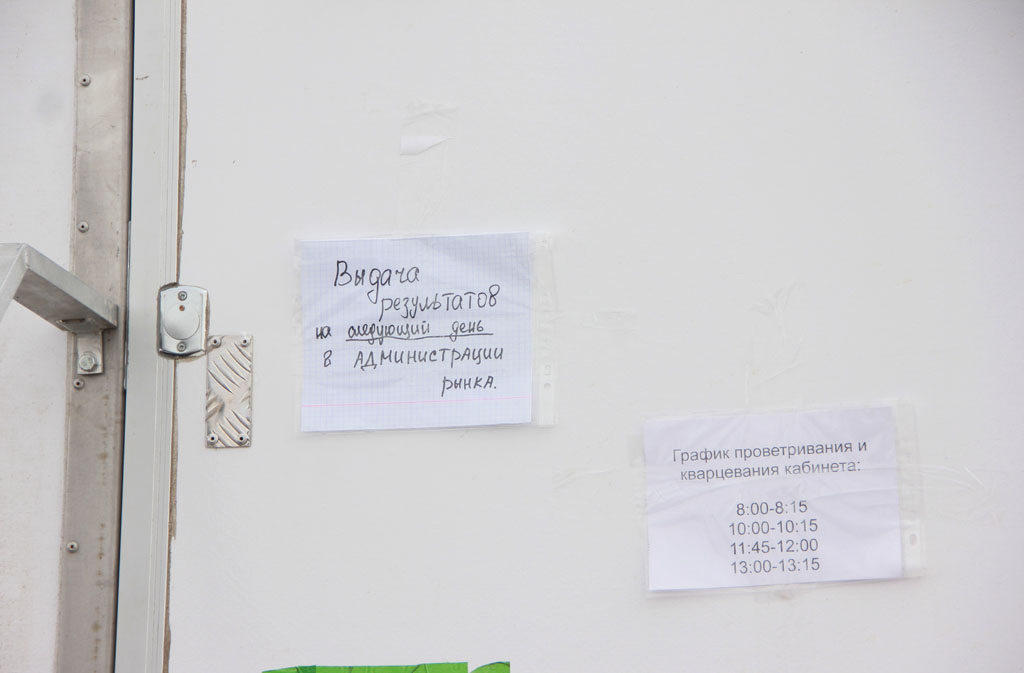 Выдача
результатов
на следующий день
в администрации
рынка.
График проветривания и
кварцевания кабинета:
8:00-8:15
10:00-10:15
11:45-12:00
13:00-13:15